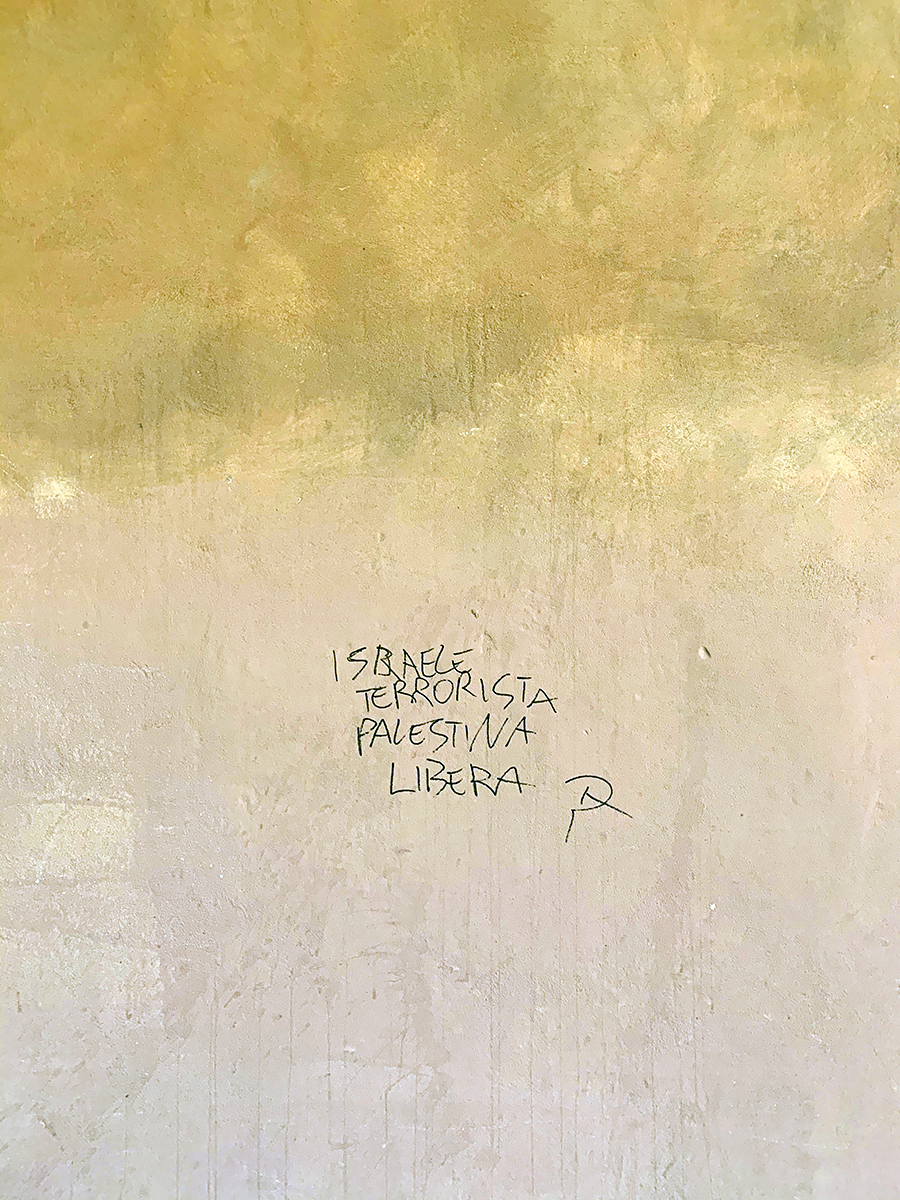 ISRAELE
TERRORISTA
PALESTINA
LIBERA